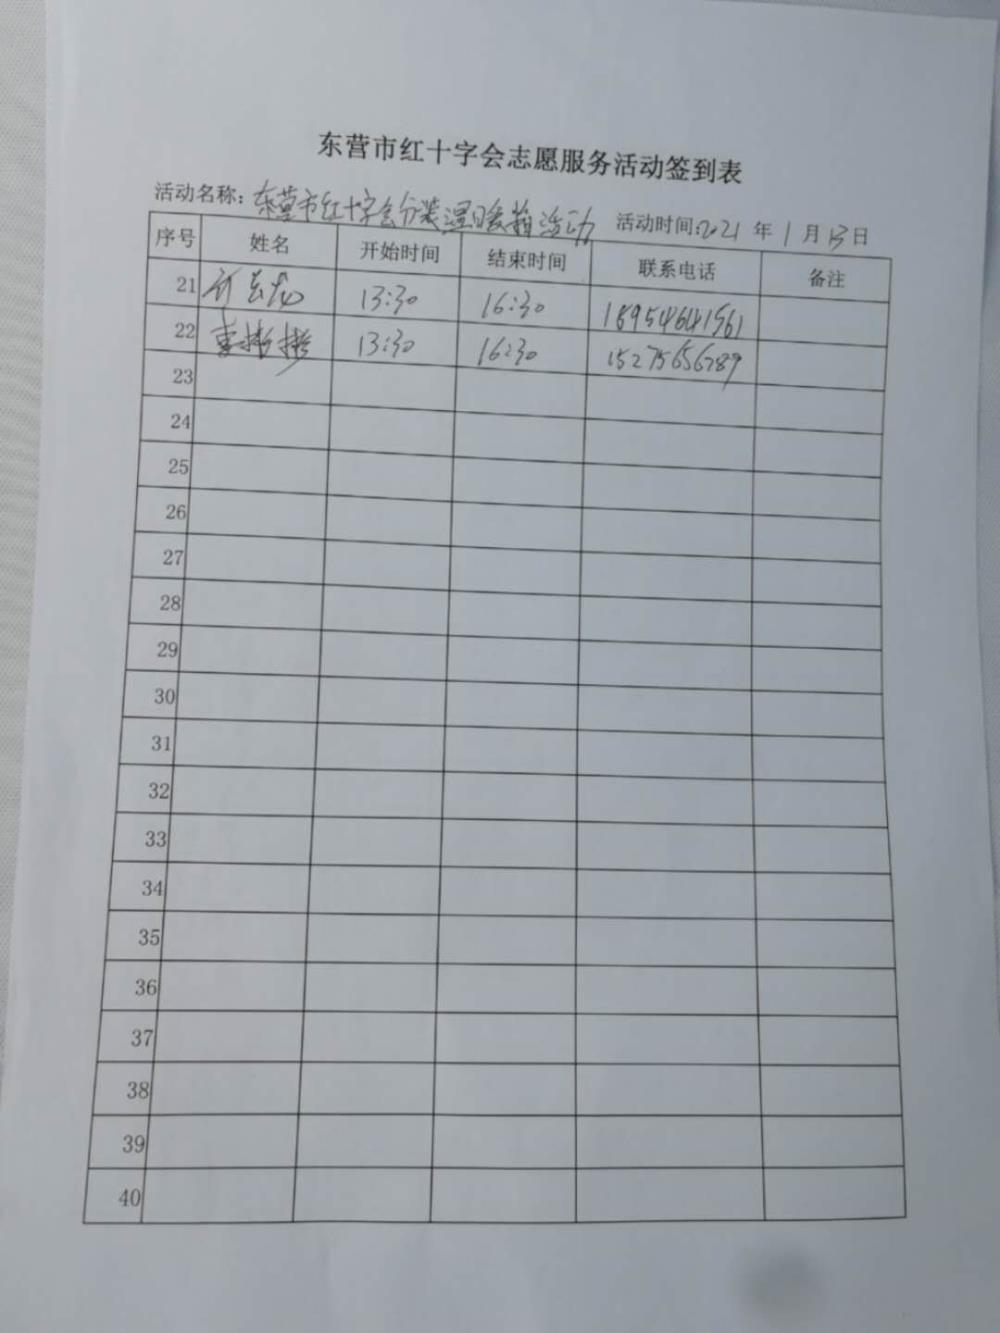 东营市红十字会志愿服务活动签到表
活动名称：东营市红十字会分装温暖箱活动 活动时间：2021 年 1 月 13 日
序号 姓名 开始时间 结束时间 联系电话 备注
21 13:30 16:30 18954641561
22 13:30 16:30 15275656789
23
24
25
26
27
28
29
30
31
32
33
34
35
36
37
38
39
40